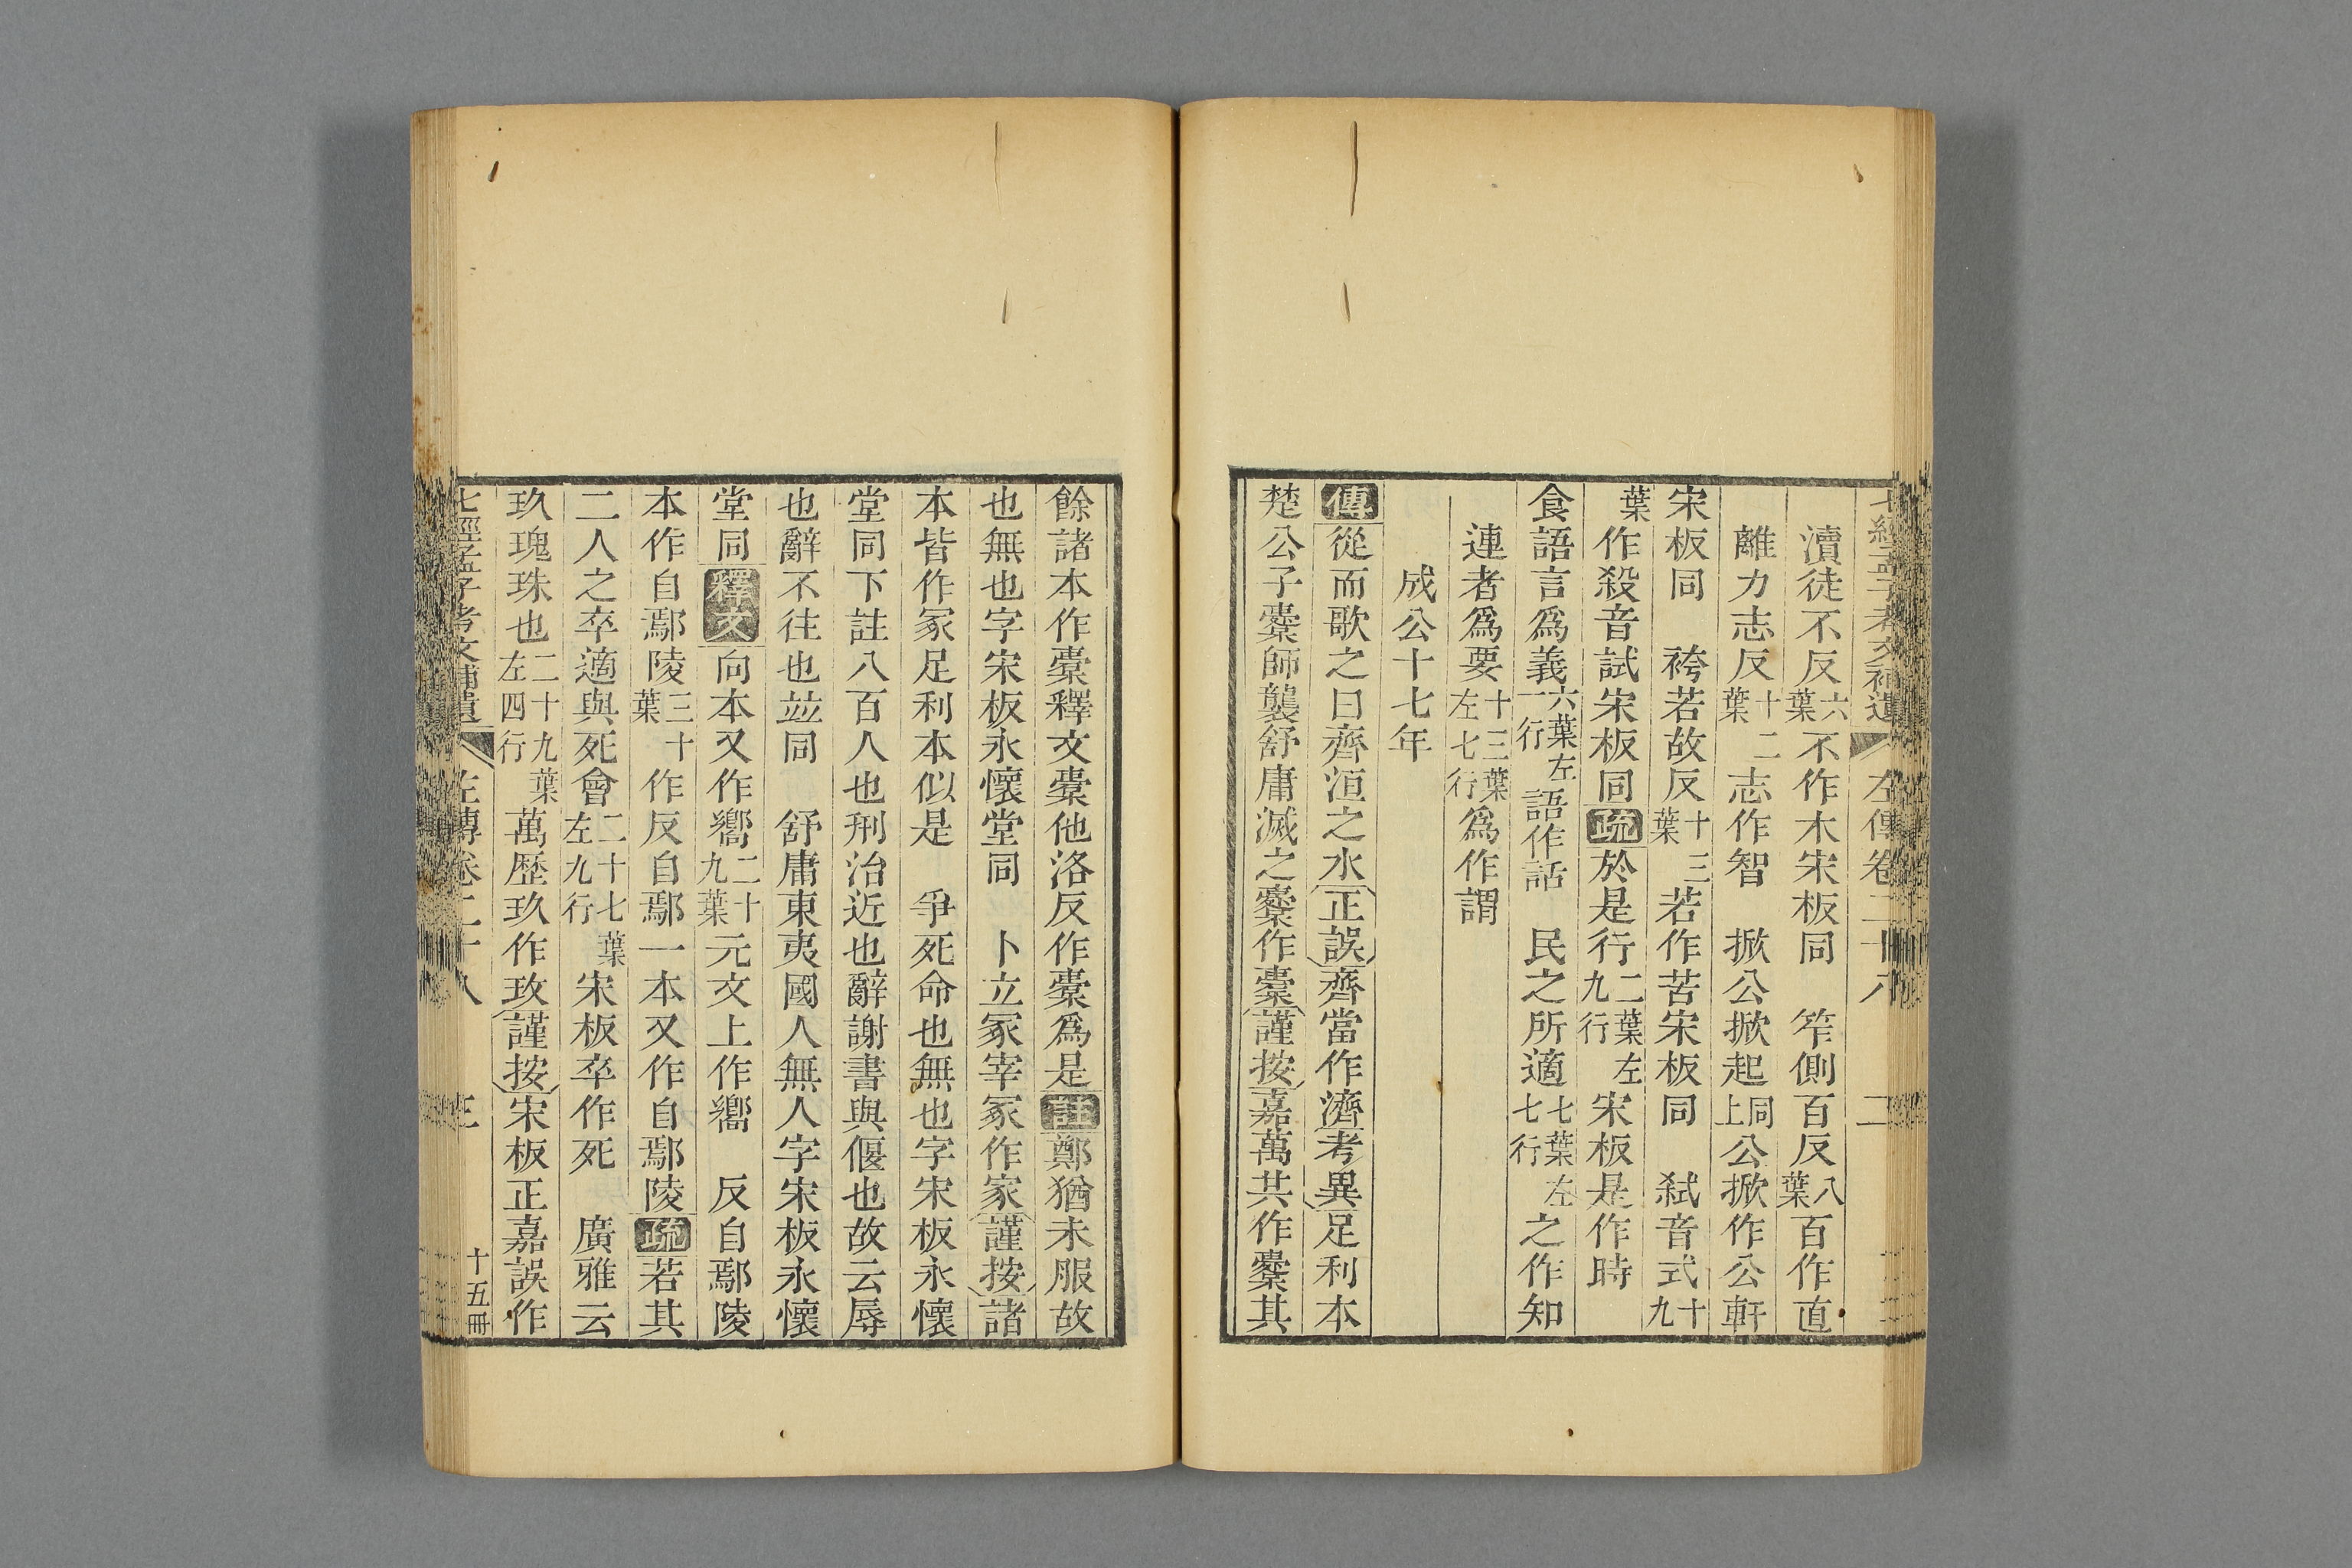 七經孟子考文補遺 左傳卷二十八 二
瀆徒不反六葉不作木宋板同 笮側百反八葉百作直
離力志反十二葉志作智 掀公掀起同上公掀作公軒
宋板同 袴若故反十三葉若作苦宋板同 弑音式十九
葉作殺音試宋板同疏於是行二葉左九行宋板是作時
食語言爲義六葉左一行語作話 民之所適七葉左七行之作知
連者爲要十三葉左七行爲作謂
成公十七年
傳從而歌之曰齊洹之水正誤齊當作濟考異足利本
楚公子櫜師襲舒庸滅之櫜作橐謹按嘉萬共作櫜其
餘諸本作橐釋文橐他洛反作橐爲是註鄭猶未服故
也無也字宋板永懷堂同 卜立冢宰冢作家謹按諸
本皆作冢足利本似是 爭死命也無也字宋板永懷
堂同下註八百人也刑治近也辭謝書與偃也故云辱
也辭不往也竝同 舒庸東夷國人無人字宋板永懷
堂同釋文向本又作嚮二十九葉元文上作嚮 反自鄢陵
本作自鄢陵三十葉作反自鄢一本又作自鄢陵疏若其
二人之卒適與死會二十七葉左九行宋板卒作死 廣雅云
玖瑰珠也二十九葉左四行萬歷玖作玫謹按宋板正嘉誤作
七經孟子考文補遺 左傳卷二十八 三 十五冊